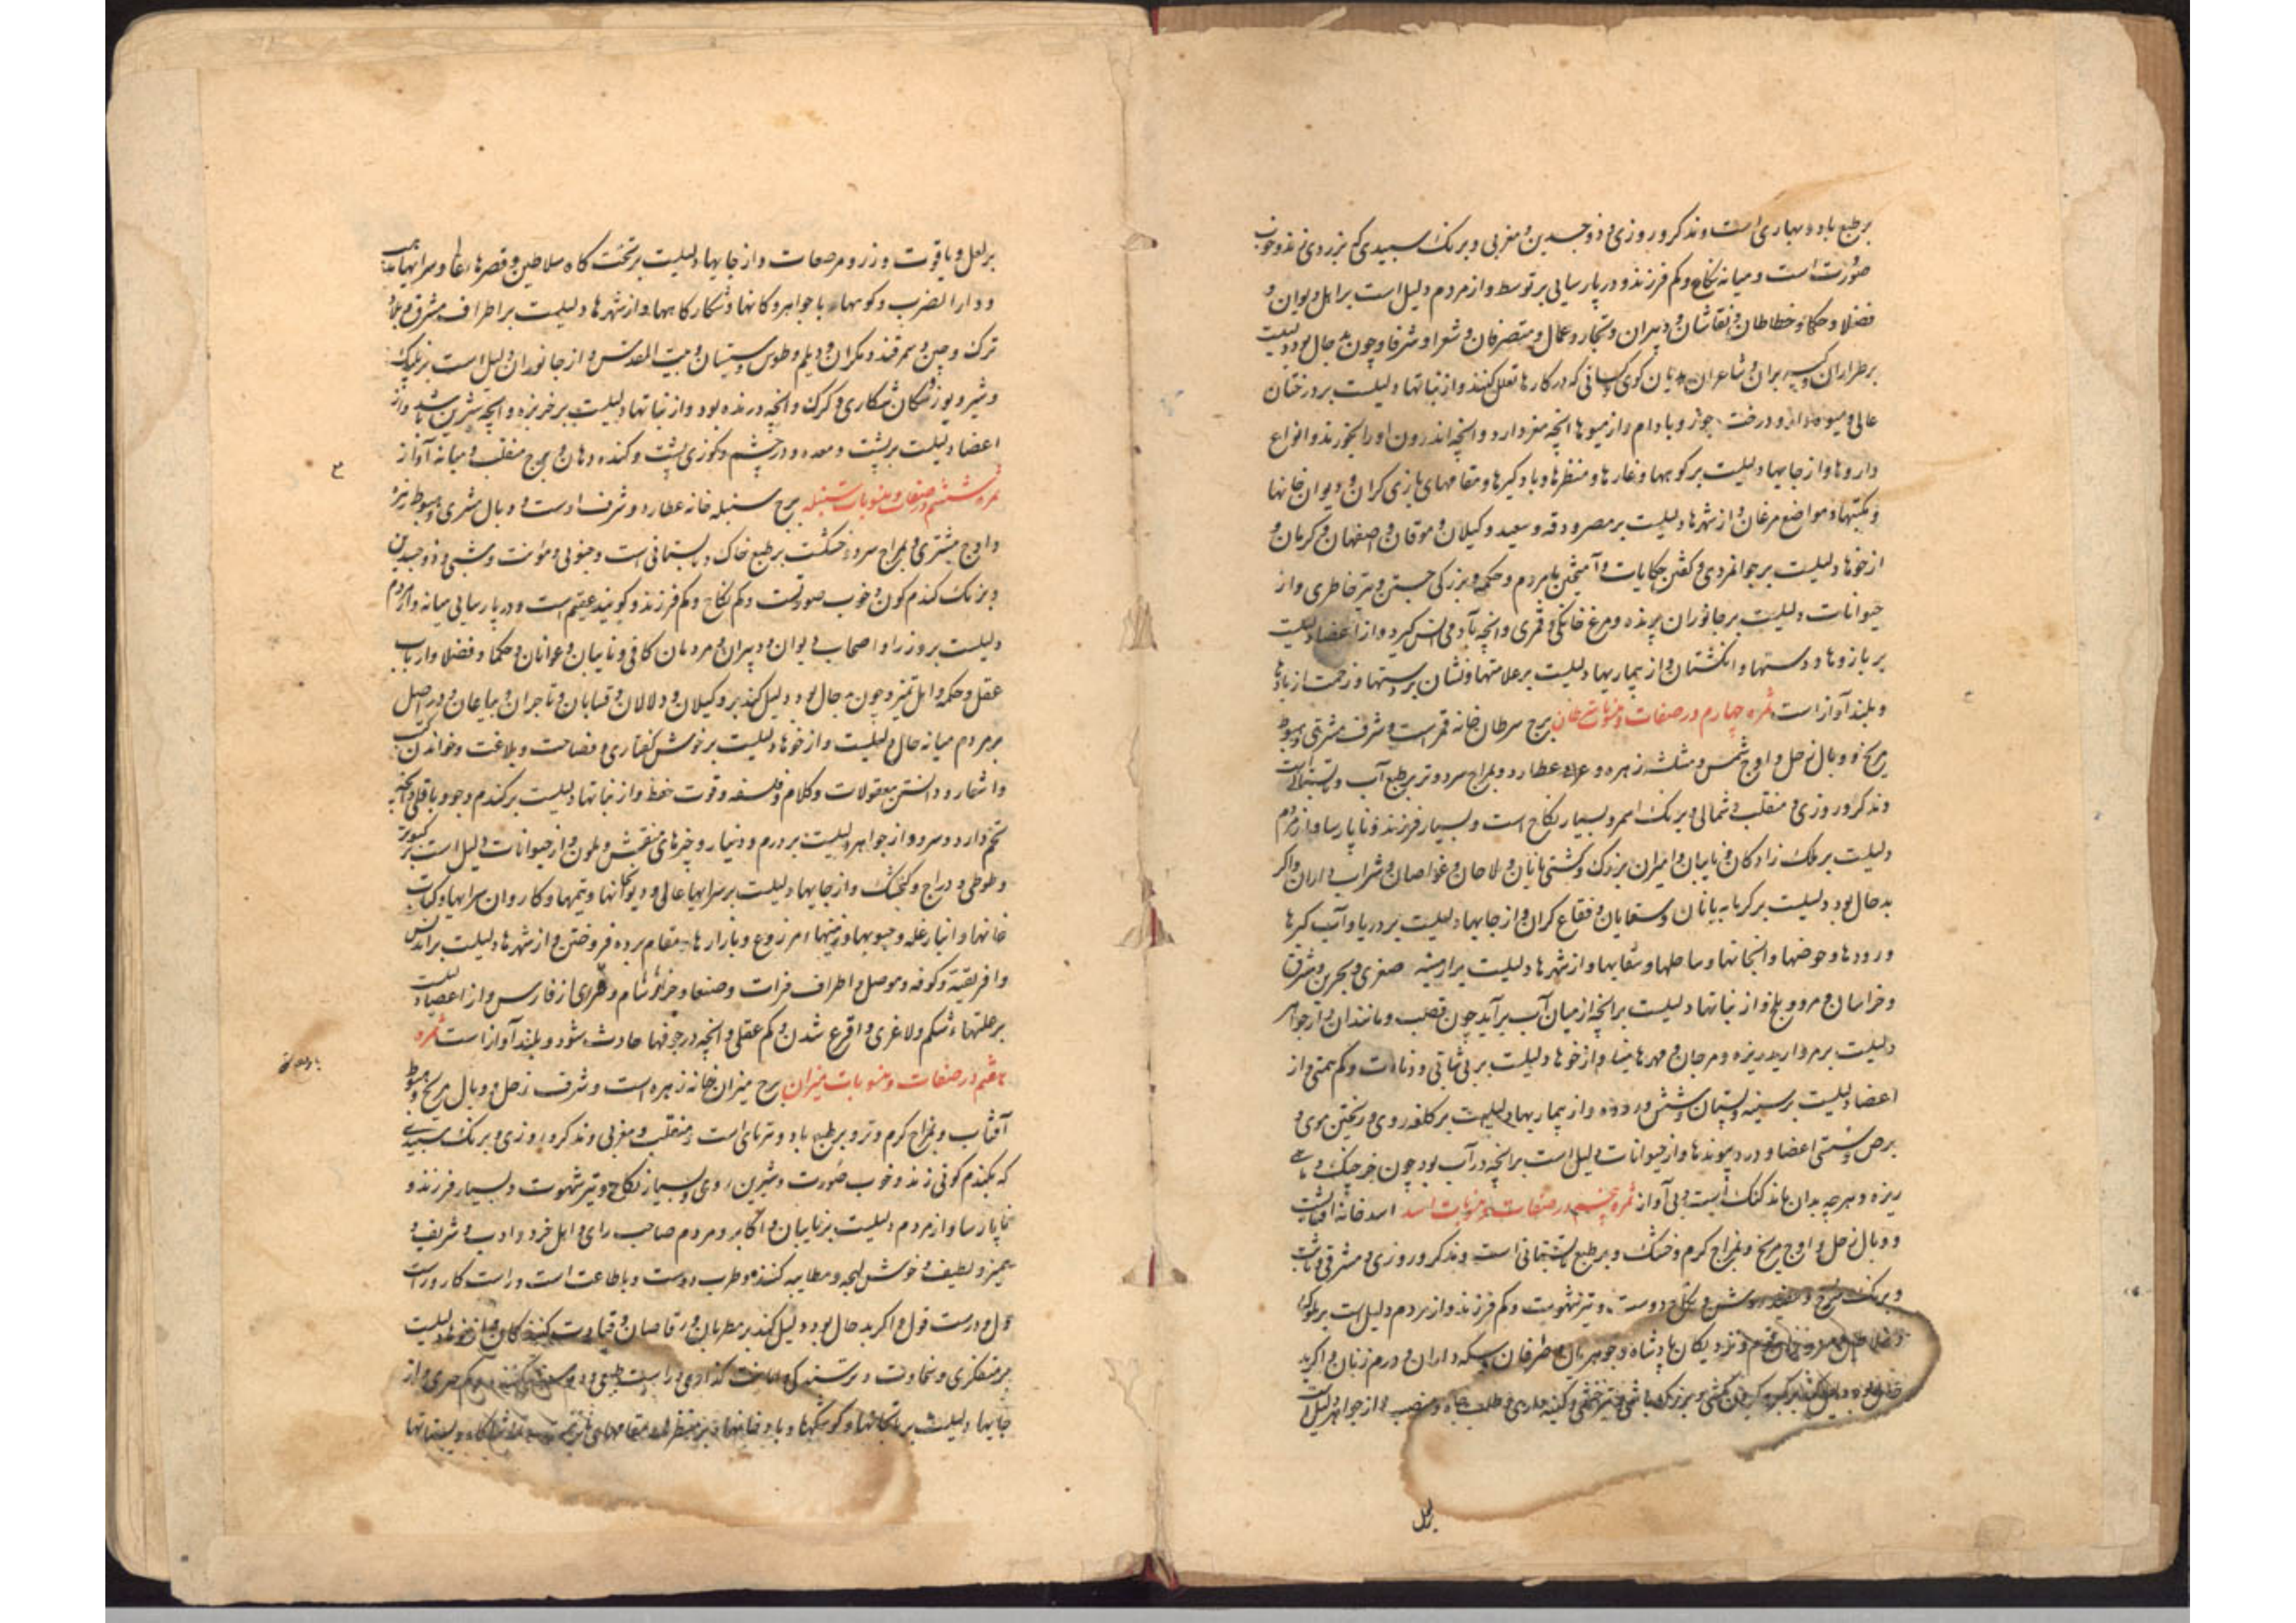 بر طبع باد و بهاری است و مذکر و روزی و ذوجسدین و مغربی و برنک سبیدی که بزردی زند و خوب
صورت است و میانه نکاح و کم فرزند و در پارسایی بر توسط و از مردم دلیل است بر اهل دیوان و
فضلا و حکما و خطاطان و نقاشان و دبیران و تجار و عمال و متصرفان و شعرا و شرفا و چون بد حال بود دلیلست
بر طراران و کیسه بران و شاعران کوی و کسانی که در کارها تعلل کنند و از نباتها دلیلست بر درختان
عالی و میوه دار و درخت جوز و بادام و از میوها انچه مغز دارد و انچه اندرون او را بخورند و انواع
داروها و از جایها دلیلست بر کوهها و غارها و منظرها و بادکیرها و مقامهای بازی کران و دیوان خانها
و مکتبها و مواضع مرغان و از شهرها دلیلست بر مصر و کیلان و موقان و اصفهان و کرمان و
از خوها دلیلست بر جوانمردی و کفتن حکایات و آمیختن با مردم و حکمه و بزرکی جستن و تیز خاطری و از
حیوانات دلیلست بر جانوران پرنده و مرغ خانکی و قمری و انچه با آدمی انس کیرد و از اعضا دلیلست
بر بازوها و دستها و انکشتان و از بیماریها دلیلست بر علامتها و نشان بر دستها و زحمت از بادها
و بلند آواز است ثمره چهارم در صفات و منسوبات سرطان برج سرطان خانه قمر است و شرف مشتری و هبوط
مریخ و وبال زحل و اوج شمس و مثلثه زهره و عطارد و بمزاج سرد و تر بر طبع آب و تابستانیست
و مذکر و روزی و منقلب و شمالی و برنک اسمر و بسیار نکاح است و بسیار فرزند و ناپارسا و از مردم
دلیلست بر ملک زادکان و نایبان و امیران بزرک و کشتی بانان و ملاحان و غواصان و شراب داران و اکر
بد حال بود دلیلست بر کرمابه بانان و سقایان و فقاع کران و از جایها دلیلست بر دریا و آب کیرها
و رودها و حوضها و ساحلها و سقایها و از شهرها دلیلست بر ارمینیه صغری و بحرین و شرق
و خراسان و مرو و بلخ و از نباتها دلیلست بر انچه از میان آب برآید چون قصب و مانند آن و از جواهر
دلیلست بر مروارید ریزه و مرجان و مهرها و از خوها دلیلست بر بی ثباتی و دنائت و کم همتی و از
اعضا دلیلست بر سینه و پستان و شش و روده و از بیماریها دلیلست بر کلفه روی و ریختن موی و
برص و سستی اعضا و درد پیوندها و از حیوانات دلیل است بر انچه در آب بود چون خرچنک و ماهی
ریزه و هر چه بدان ماند کنک است و بی آواز ثمره پنجم در صفات و منسوبات اسد اسد خانه آفتابست
و وبال زحل و اوج مریخ و بمزاج کرم و خشک و بر طبع تابستانی است و مذکر و روزی و مشرقی و ثابت
و برنک سرخ و روشن و تیز شهوت و کم فرزند و از مردم دلیل است بر ملوک
و سلاطین و نزدیکان پادشاه و جوهریان و صرافان و سکه داران و درم زنان و اکر بد
حال بود دلیلست بر کبر و بزرک منشی و کینه داری و طلب جاه و منصب و از جواهر دلیل است
بر لعل
بر لعل و یاقوت و زر و مرصعات و از جایها دلیلست بر تختکاه سلاطین و قصرها و سرایها
و دار الضرب و کوهها با جواهر و کانها و شکارکاهها و از شهرها دلیلست بر اطراف مشرق و
ترک و چین و سمرقند و مکران و دیلم و طوس و سیستان و بیت المقدس و از جانوران دلیل است بر پلنک
و شیر و یوز و سکان شکاری و کرک و انچه درنده بود و از نباتها دلیلست بر خربزه و انچه شیرین باشد و از
اعضا دلیلست بر پشت و معده و درد چشم و کوزی پشت و کنده دهان و برج منقلب و میانه آواز
ثمره ششم در صفات و منسوبات سنبله برج سنبله خانه عطارد و شرف اوست و وبال مشتری و هبوط زهره
و اوج مشتری و بمزاج سرد و خشکست بر طبع خاک و تابستانی است و جنوبی و مؤنث و شبی و ذوجسدین
و برنک کندم کون و خوب صورتست و کم نکاح و کم فرزند و کویند عقیم است و در پارسایی میانه و از مردم
دلیلست بر وزرا و اصحاب دیوان و دبیران و مردمان کافی و نایبان و عوانان و حکما و فضلا و ارباب
عقل و حکمه و اهل تمیز و چون بد حال بود دلیل کند بر وکیلان و دلالان و قصابان و تاجران و بیاعان و در اصل
بر مردم میانه حال دلیلست و از خوها دلیلست بر خوش کفتاری و فصاحت و بلاغت و خواندن کتب
و اشعار و دانستن معقولات و کلام و فلسفه و قوت حفظ و از نباتها دلیلست بر کندم و جو و باقلی و انچه
تخم دارد و سرد و از جواهر دلیلست بر درم و دینار و چیزهای منقش و ملون و از حیوانات دلیل است بر کبوتر
و طوطی و دراج و کنجشک و از جایها دلیلست بر سرایها عالی و دیوانها و تیمها و کاروان سرایها و کتاب
خانها و انبار غله و حبوبها و زمینهاء مزروع و بازارها و مقام برده فروختن و از شهرها دلیلست بر اندلس
و افریقیه و کوفه و موصل و اطراف فرات و صنعا و جزائر شام و از فارس و از اعضا دلیلست
بر علتهاء شکم و لاغری و اقرع شدن و کم عقلی و انچه در جوفها حادث شود و بلند آواز است ثمره
هفتم در صفات و منسوبات میزان برج میزان خانه زهره است و شرف زحل و وبال مریخ و هبوط
آفتاب و بمزاج کرم و تر و بر طبع باد و است و منقلب و مغربی و مذکر و روزی و برنک سبیدی
که بکندم کونی زند و خوب صورت و شیرین روی و بسیار نکاح و تیز شهوت و بسیار فرزند و
ناپارسا و از مردم دلیلست بر نایبان و اکابر و مردم صاحب رای و اهل خرد و ادب و شریف و
ممیز و لطیف و خوش لهجه و مطایبه کننده و طرب دوست و با طاعت است و راست کار و راست
و درست قول و اکر بد حال بود دلیل کند بر مطربان و رقاصان و و از خوها دلیلست
بر متفکری و سخاوت و پرستندکی و امانت کذاری و راست طبعی و از
جایها دلیلست بر و کوشکها و بادخانها و منظرها و مقامهای